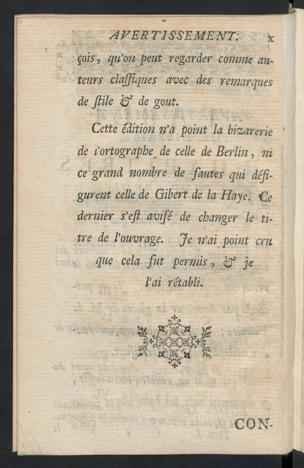 AVERTISSEMENT. x
çois, qu'on peut regarder comme au-
teurs classiques avec des remarques
de stile & de gout.
Cette édition n'a point la bizarerie
de l'ortographe de celle de Berlin, ni
ce grand nombre de fautes qui défi-
gurent celle de Gibert de la Haye. Ce
dernier s'est avisé de changer le ti-
tre de l'ouvrage. Je n'ai point cru
que cela fut permis, & je
l'ai rétabli.
CON-